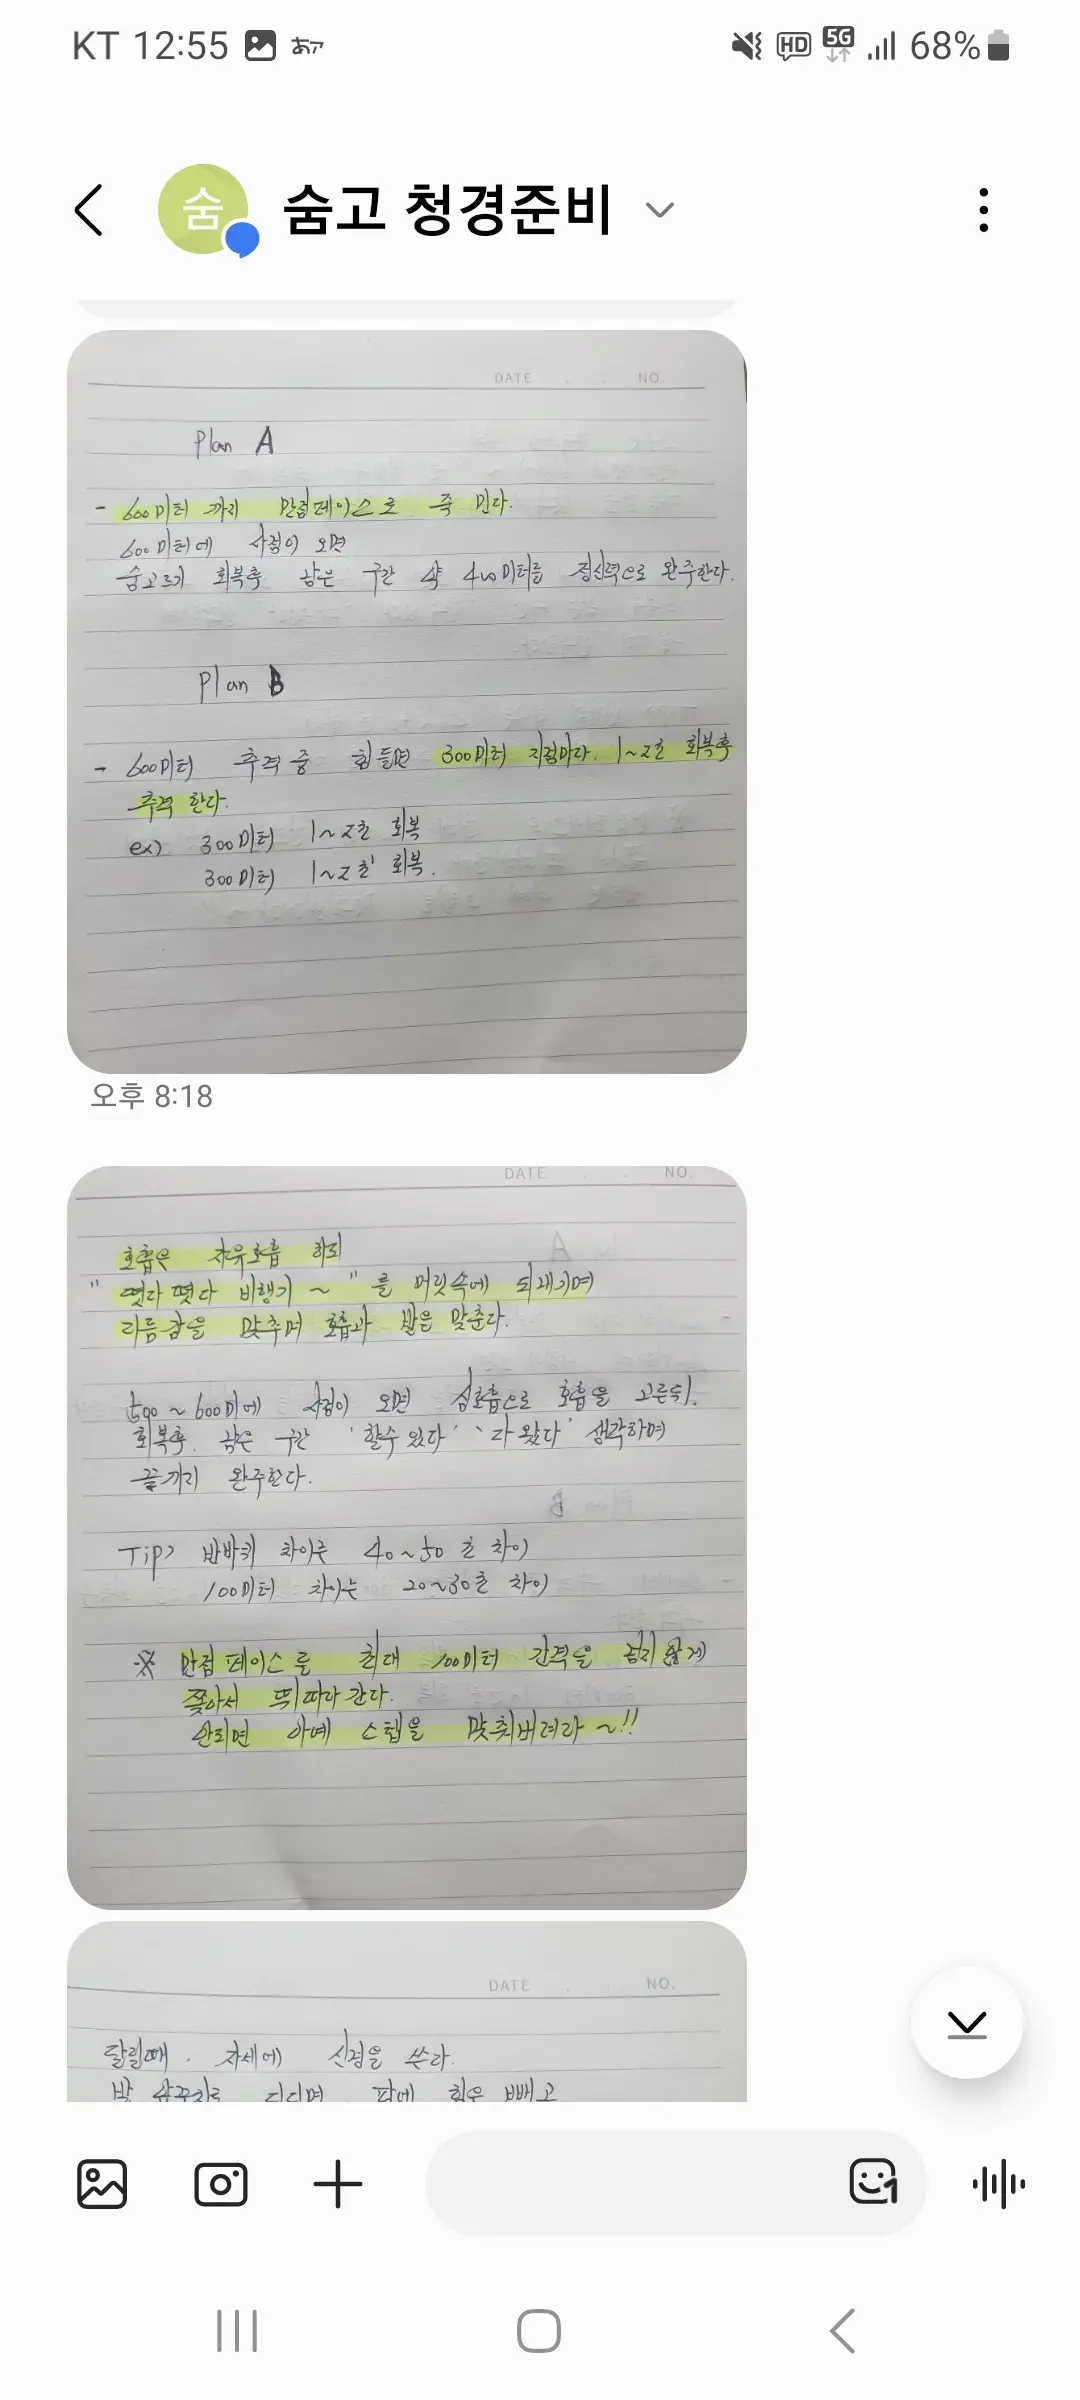 KT 12:55
5G 68%
숨
숨고 청경준비
DATE . . NO.
Plan A
- 600미터 까지 만점페이스로 쭉 민다.
600미터에 사점이 오면
숨고르기 회복후 남은 구간 약 400미터를 정신력으로 완주한다.
Plan B
- 600미터 추격중 힘들면 300미터 지점마다. 1~2초 회복후
추격 한다.
ex) 300미터 1~2초 회복
300미터 1~2초 회복.
오후 8:18
DATE . . NO.
호흡은 자유호흡 하되
"떴다 떴다 비행기 ~" 를 머릿속에 되새기며
리듬감을 맞추며 호흡과 발을 맞춘다.
500~600미에 사점이 오면 심호흡으로 호흡을 고른뒤.
회복후. 남은 구간 '할수있다' '다왔다' 생각하며
끝까지 완주한다.
Tip> 반바퀴 차이는 40~50초 차이
100미터 차이는 20~30초 차이
※ 만점페이스를 최대 100미터 간격을 넘지않게
쫓아서 뛰따라간다.
안되면 아예 스텝을 맞춰버려라~!!
DATE . . NO.
달릴때. 자세에 신경을 쓴다.
발 앞꿈치로 디디며 팔에 힘은 빼고